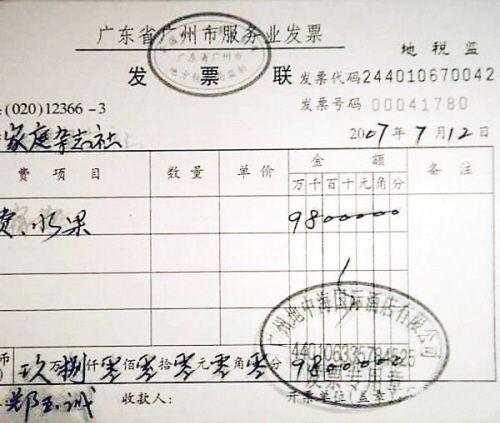 广东省广州市服务业发票
地税监
发票联
发票代码244010670042
发票号码00041780
(020)12366-3
2007年7月12日
家庭杂志社
费项目 数量 单价 金额 备注
万千百十元角分
费水果 9800000
广州地中海国际酒店有限公司
发票专用章
玖万捌仟零佰零拾零元零角零分 9800000
郑玉诚 收款人: 开票单位(盖章)